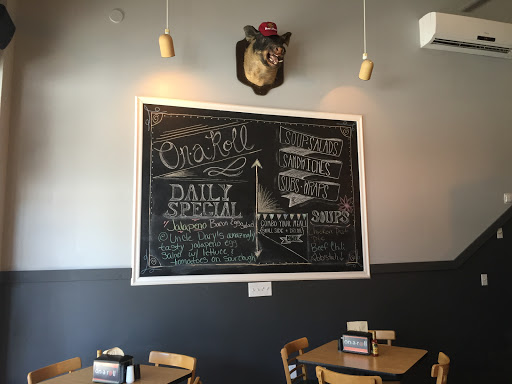 On-a-Roll
DAILY
SPECIAL
Jalapeno Bacon Egg Salad
@ Uncle Daryl's amazingly
tasty jalapeno egg
salad w/ lettuce &
tomatoes on sourdough
SOUP-SALADS
SANDWICHES
SUBS-WRAPS
COMBO YOUR MEAL
SMALL SIDE + DRINK
SOUPS
Chicken
Beef Chili
on-a-roll